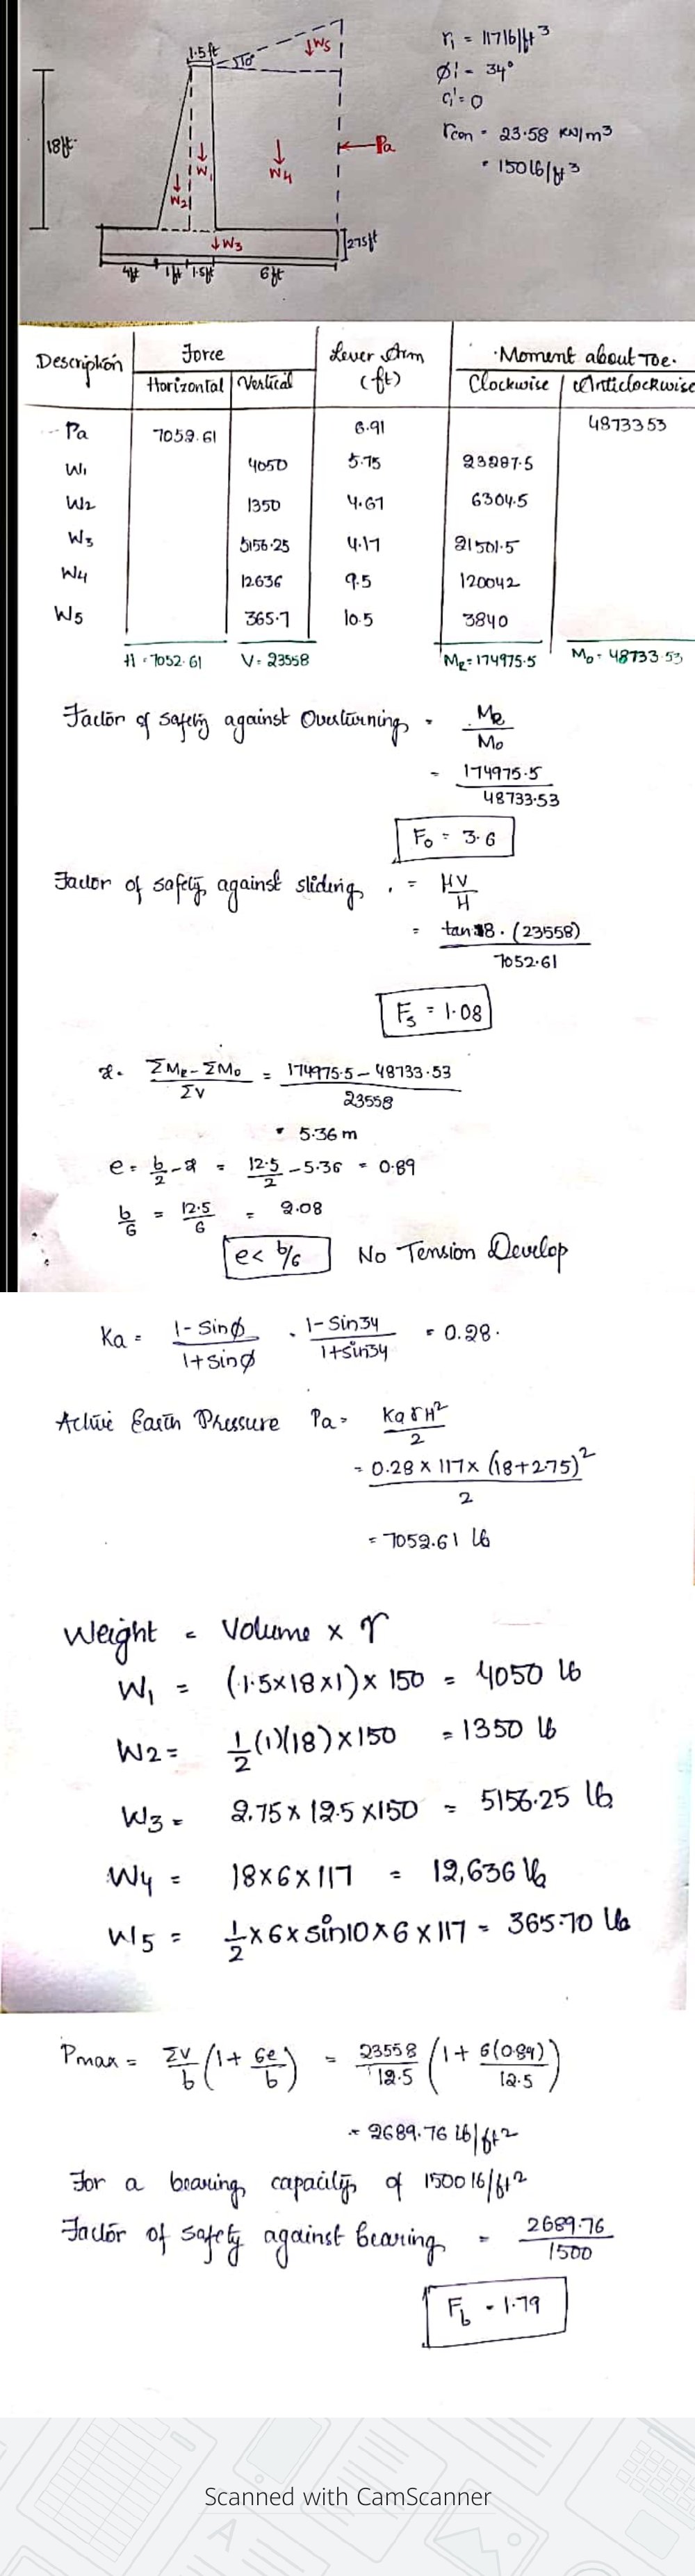 1.5ft
10°
↓W5
r1 = 117lb/ft3
ϕ1' = 34°
c1' = 0
rcon = 23.58 KN/m3
= 150 lb/ft3
18ft
↓W1
↓W2
↓W4
←Pa
↓W3
2.75ft
4ft 1ft 1.5ft 6ft
Description Force Lever Arm (ft) Moment about Toe.
Horizontal Vertical Clockwise Anticlockwise
Pa 7052.61 6.91 4873353
W1 4050 5.75 23287.5
W2 1350 4.67 6304.5
W3 5156.25 4.17 21501.5
W4 12636 9.5 120042
W5 365.7 10.5 3840
H = 7052.61 V = 23558 MR = 174975.5 Mo = 48733.53
Factor of safety against Overturning = MR / Mo
= 174975.5 / 48733.53
Fo = 3.6
Factor of safety against sliding, = HV / H
= tan 18. (23558) / 7052.61
Fs = 1.08
x = ΣMR - ΣMo / ΣV = 174975.5 - 48733.53 / 23558
= 5.36 m
e = b/2 - x = 12.5/2 - 5.36 = 0.89
b/6 = 12.5/6 = 2.08
e < b/6 No Tension Develop
Ka = 1 - sinϕ / 1 + sinϕ = 1 - sin34 / 1 + sin34 = 0.28.
Active Earth Pressure Pa = KaγH2 / 2
= 0.28 x 117 x (18+2.75)2 / 2
= 7052.61 lb
Weight = Volume x γ
W1 = (1.5x18x1) x 150 = 4050 lb
W2 = 1/2 (1)(18) x 150 = 1350 lb
W3 = 2.75 x 12.5 x 150 = 5156.25 lb
W4 = 18x6x117 = 12,636 lb
W5 = 1/2 x 6 x sin10 x 6 x 117 = 365.70 lb
Pmax = ΣV/b (1 + 6e/b) = 23558/12.5 (1 + 6(0.89)/12.5)
= 2689.76 lb/ft2
For a bearing capacity of 1500 lb/ft2
Factor of safety against bearing = 2689.76 / 1500
Fb = 1.79
Scanned with CamScanner